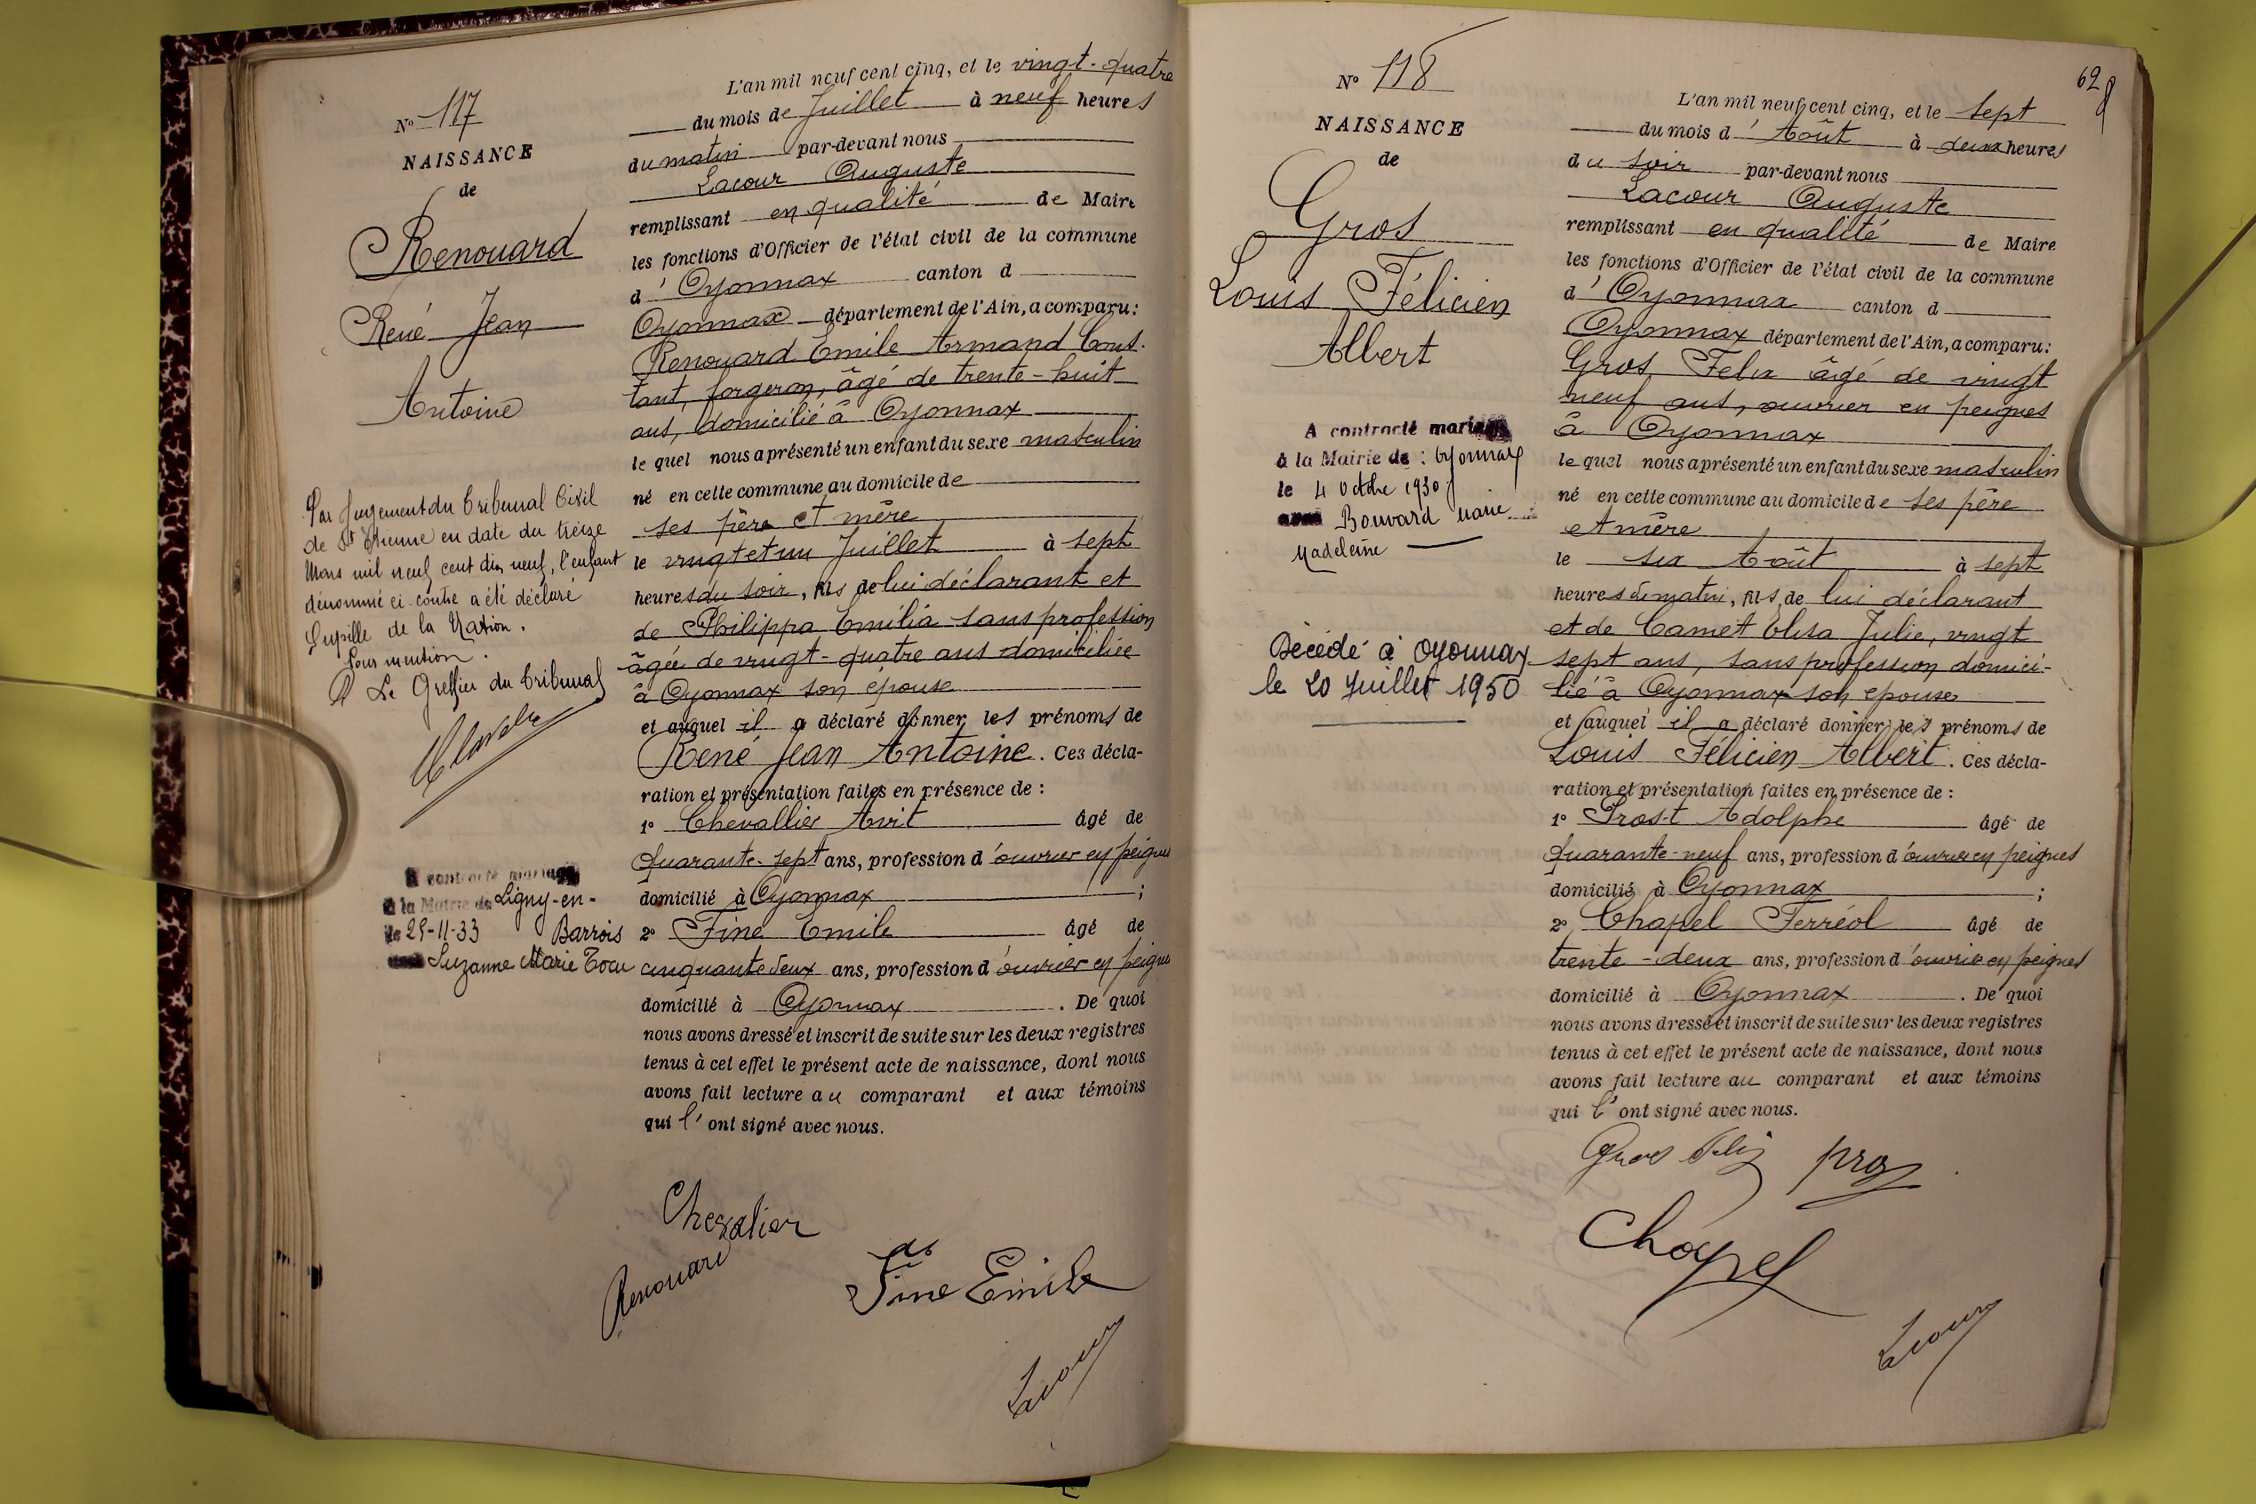 N° 117
NAISSANCE
de
Renouard
René Jean
Antoine
Par jugement du Tribunal Civil
de St Etienne en date du treize
Mars mil neuf cent dix neuf, l'enfant
dénommé ci-contre a été déclaré
Pupille de la Nation.
Pour mention.
Le Greffier du Tribunal
A contracté mariage
à la Mairie de Ligny-en-
le 25-11-33 Barrois
avec Suzanne Marie
L'an mil neuf cent cinq, et le vingt-quatre
du mois de Juillet à neuf heures
du matin par-devant nous
Lacour Auguste
remplissant en qualité de Maire
les fonctions d'Officier de l'état civil de la commune
d' Oyonnax canton d
Oyonnax département de l'Ain, a comparu:
Renouard Emile Armand Cons-
tant, forgeron, âgé de trente-huit
ans, domicilié à Oyonnax
le quel nous a présenté un enfant du sexe masculin
né en cette commune au domicile de
ses père et mère
le vingt et un Juillet à sept
heures du soir, fils de lui déclarant et
de Philippa Emilia sans profession
âgée de vingt-quatre ans domiciliée
à Oyonnax son épouse
et auquel il a déclaré donner les prénoms de
René Jean Antoine. Ces décla-
ration et présentation faites en présence de :
1° Chevallier Avit âgé de
quarante-sept ans, profession d'ouvrier en peignes
domicilié à Oyonnax ;
2° Fine Emile âgé de
cinquante deux ans, profession d'ouvrier en peignes
domicilié à Oyonnax. De quoi
nous avons dressé et inscrit de suite sur les deux registres
tenus à cet effet le présent acte de naissance, dont nous
avons fait lecture au comparant et aux témoins
qui l'ont signé avec nous.
Chevalier
Renouard
Fine Emile
Lacour
62
N° 118
NAISSANCE
de
Gros
Louis Félicien
Albert
A contracté mariage
à la Mairie de : Oyonnax
le 4 octobre 1930
avec Bouvard Marie
Madeleine
Décédé à Oyonnax
le 20 Juillet 1950
L'an mil neuf cent cinq, et le sept
du mois d'Août à deux heures
du soir par-devant nous
Lacour Auguste
remplissant en qualité de Maire
les fonctions d'Officier de l'état civil de la commune
d' Oyonnax canton d
Oyonnax département de l'Ain, a comparu:
Gros Felix âgé de vingt
neuf ans, ouvrier en peignes
à Oyonnax
le quel nous a présenté un enfant du sexe masculin
né en cette commune au domicile de ses père
et mère
le six Août à sept
heures du matin, fils de lui déclarant
et de Camet Elisa Julie, vingt
sept ans, sans profession domici-
lié à Oyonnax son épouse
et auquel il a déclaré donner les prénoms de
Louis Félicien Albert. Ces décla-
ration et présentation faites en présence de :
1° Prost Adolphe âgé de
quarante-neuf ans, profession d'ouvrier en peignes
domicilié à Oyonnax ;
2° Chapel Ferréol âgé de
trente-deux ans, profession d'ouvrier en peignes
domicilié à Oyonnax. De quoi
nous avons dressé et inscrit de suite sur les deux registres
tenus à cet effet le présent acte de naissance, dont nous
avons fait lecture au comparant et aux témoins
qui l'ont signé avec nous.
Gros Felix
Chapel
Lacour